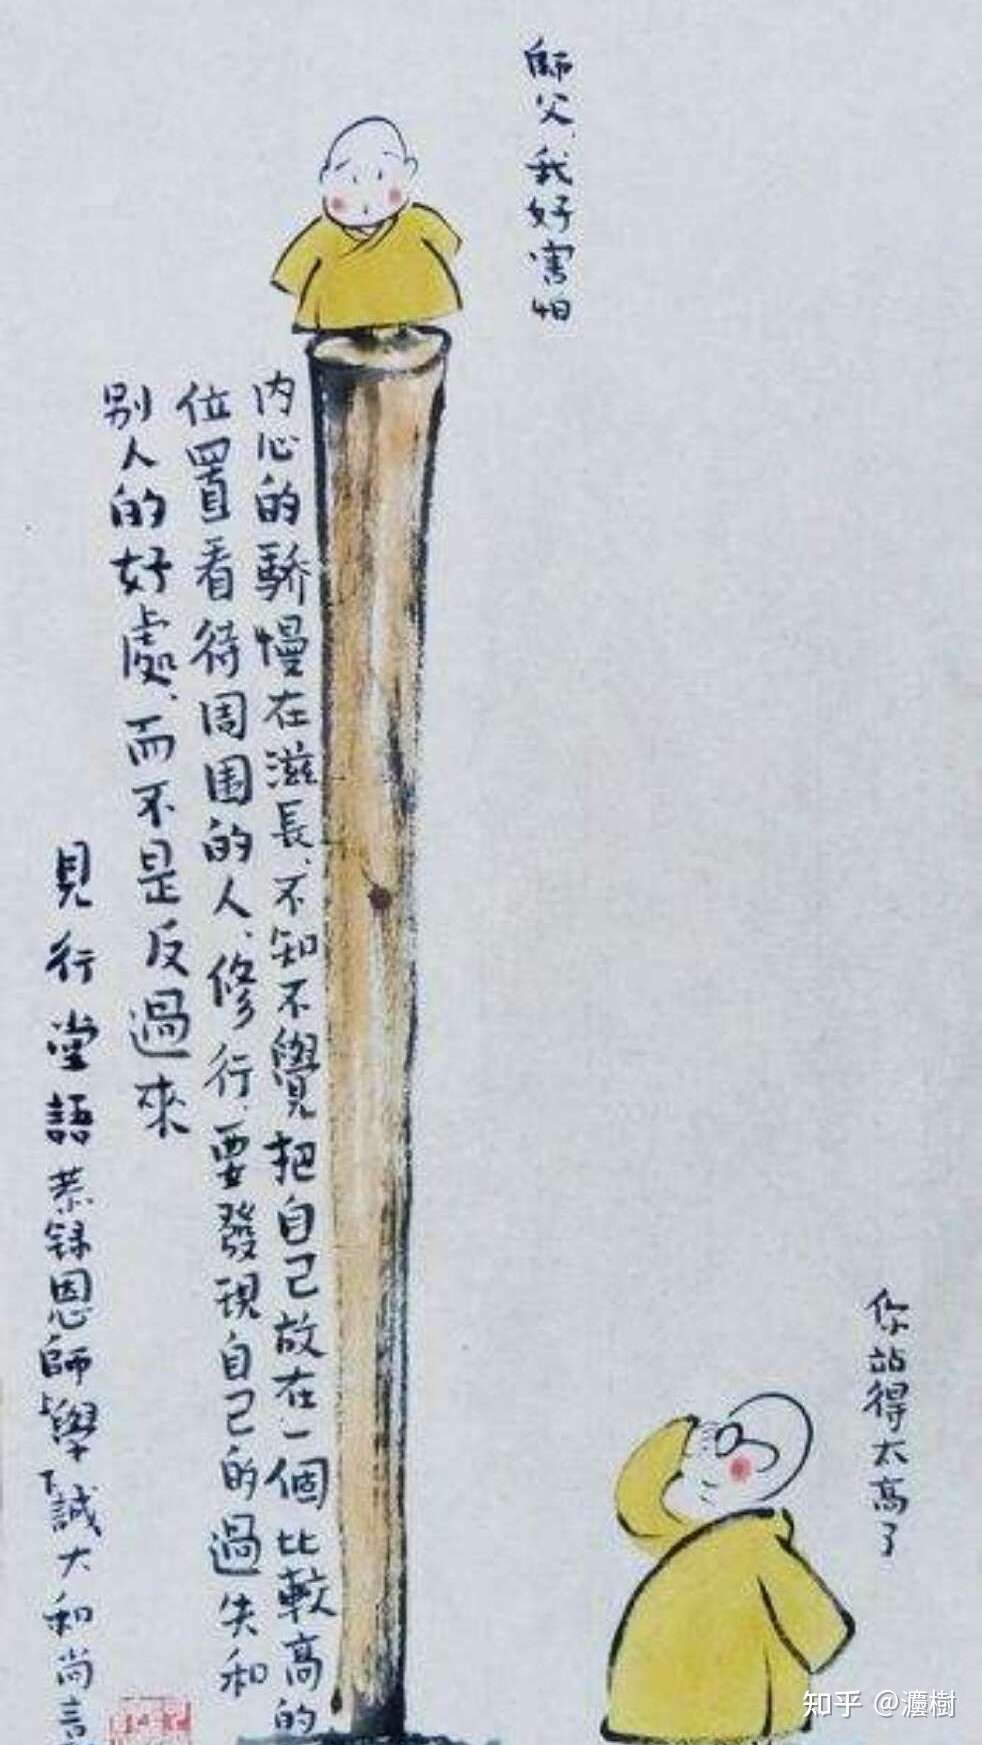 師父，我好害怕
內心的驕慢在滋長、不知不覺把自己放在一個比較高的
位置看待周围的人、修行、要發現自己的過失和
别人的好處、而不是反過來
見行堂語 恭録恩師上學下誠大和尚言
你站得太高了
知乎 @灋樹